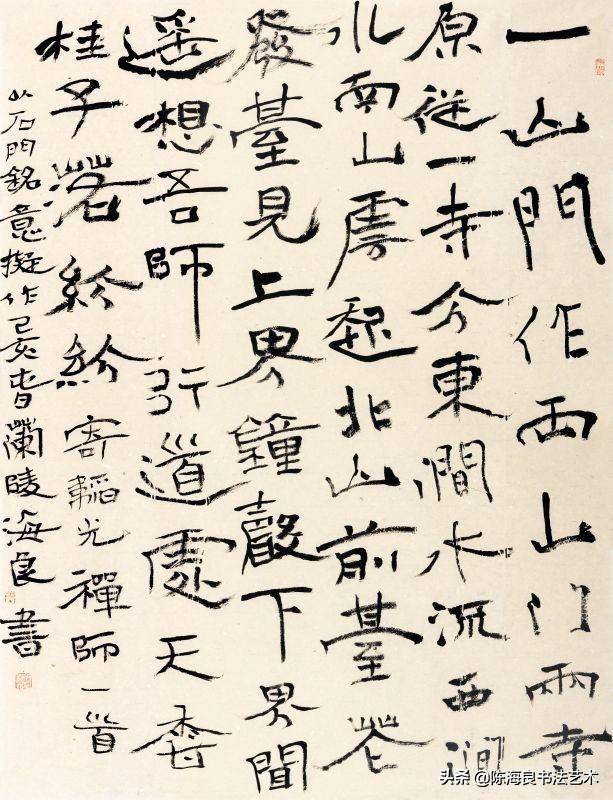 一山門作兩山門兩寺
原從一寺分東澗水流西澗
水南山雲起北山前臺花
發臺見上界鐘聲下界聞
遙想吾師行道處天香
桂子落紛紛寄韜光禪師一首
以石門銘意擬作己亥春蘭陵海良書
头条@陈海良书法艺术